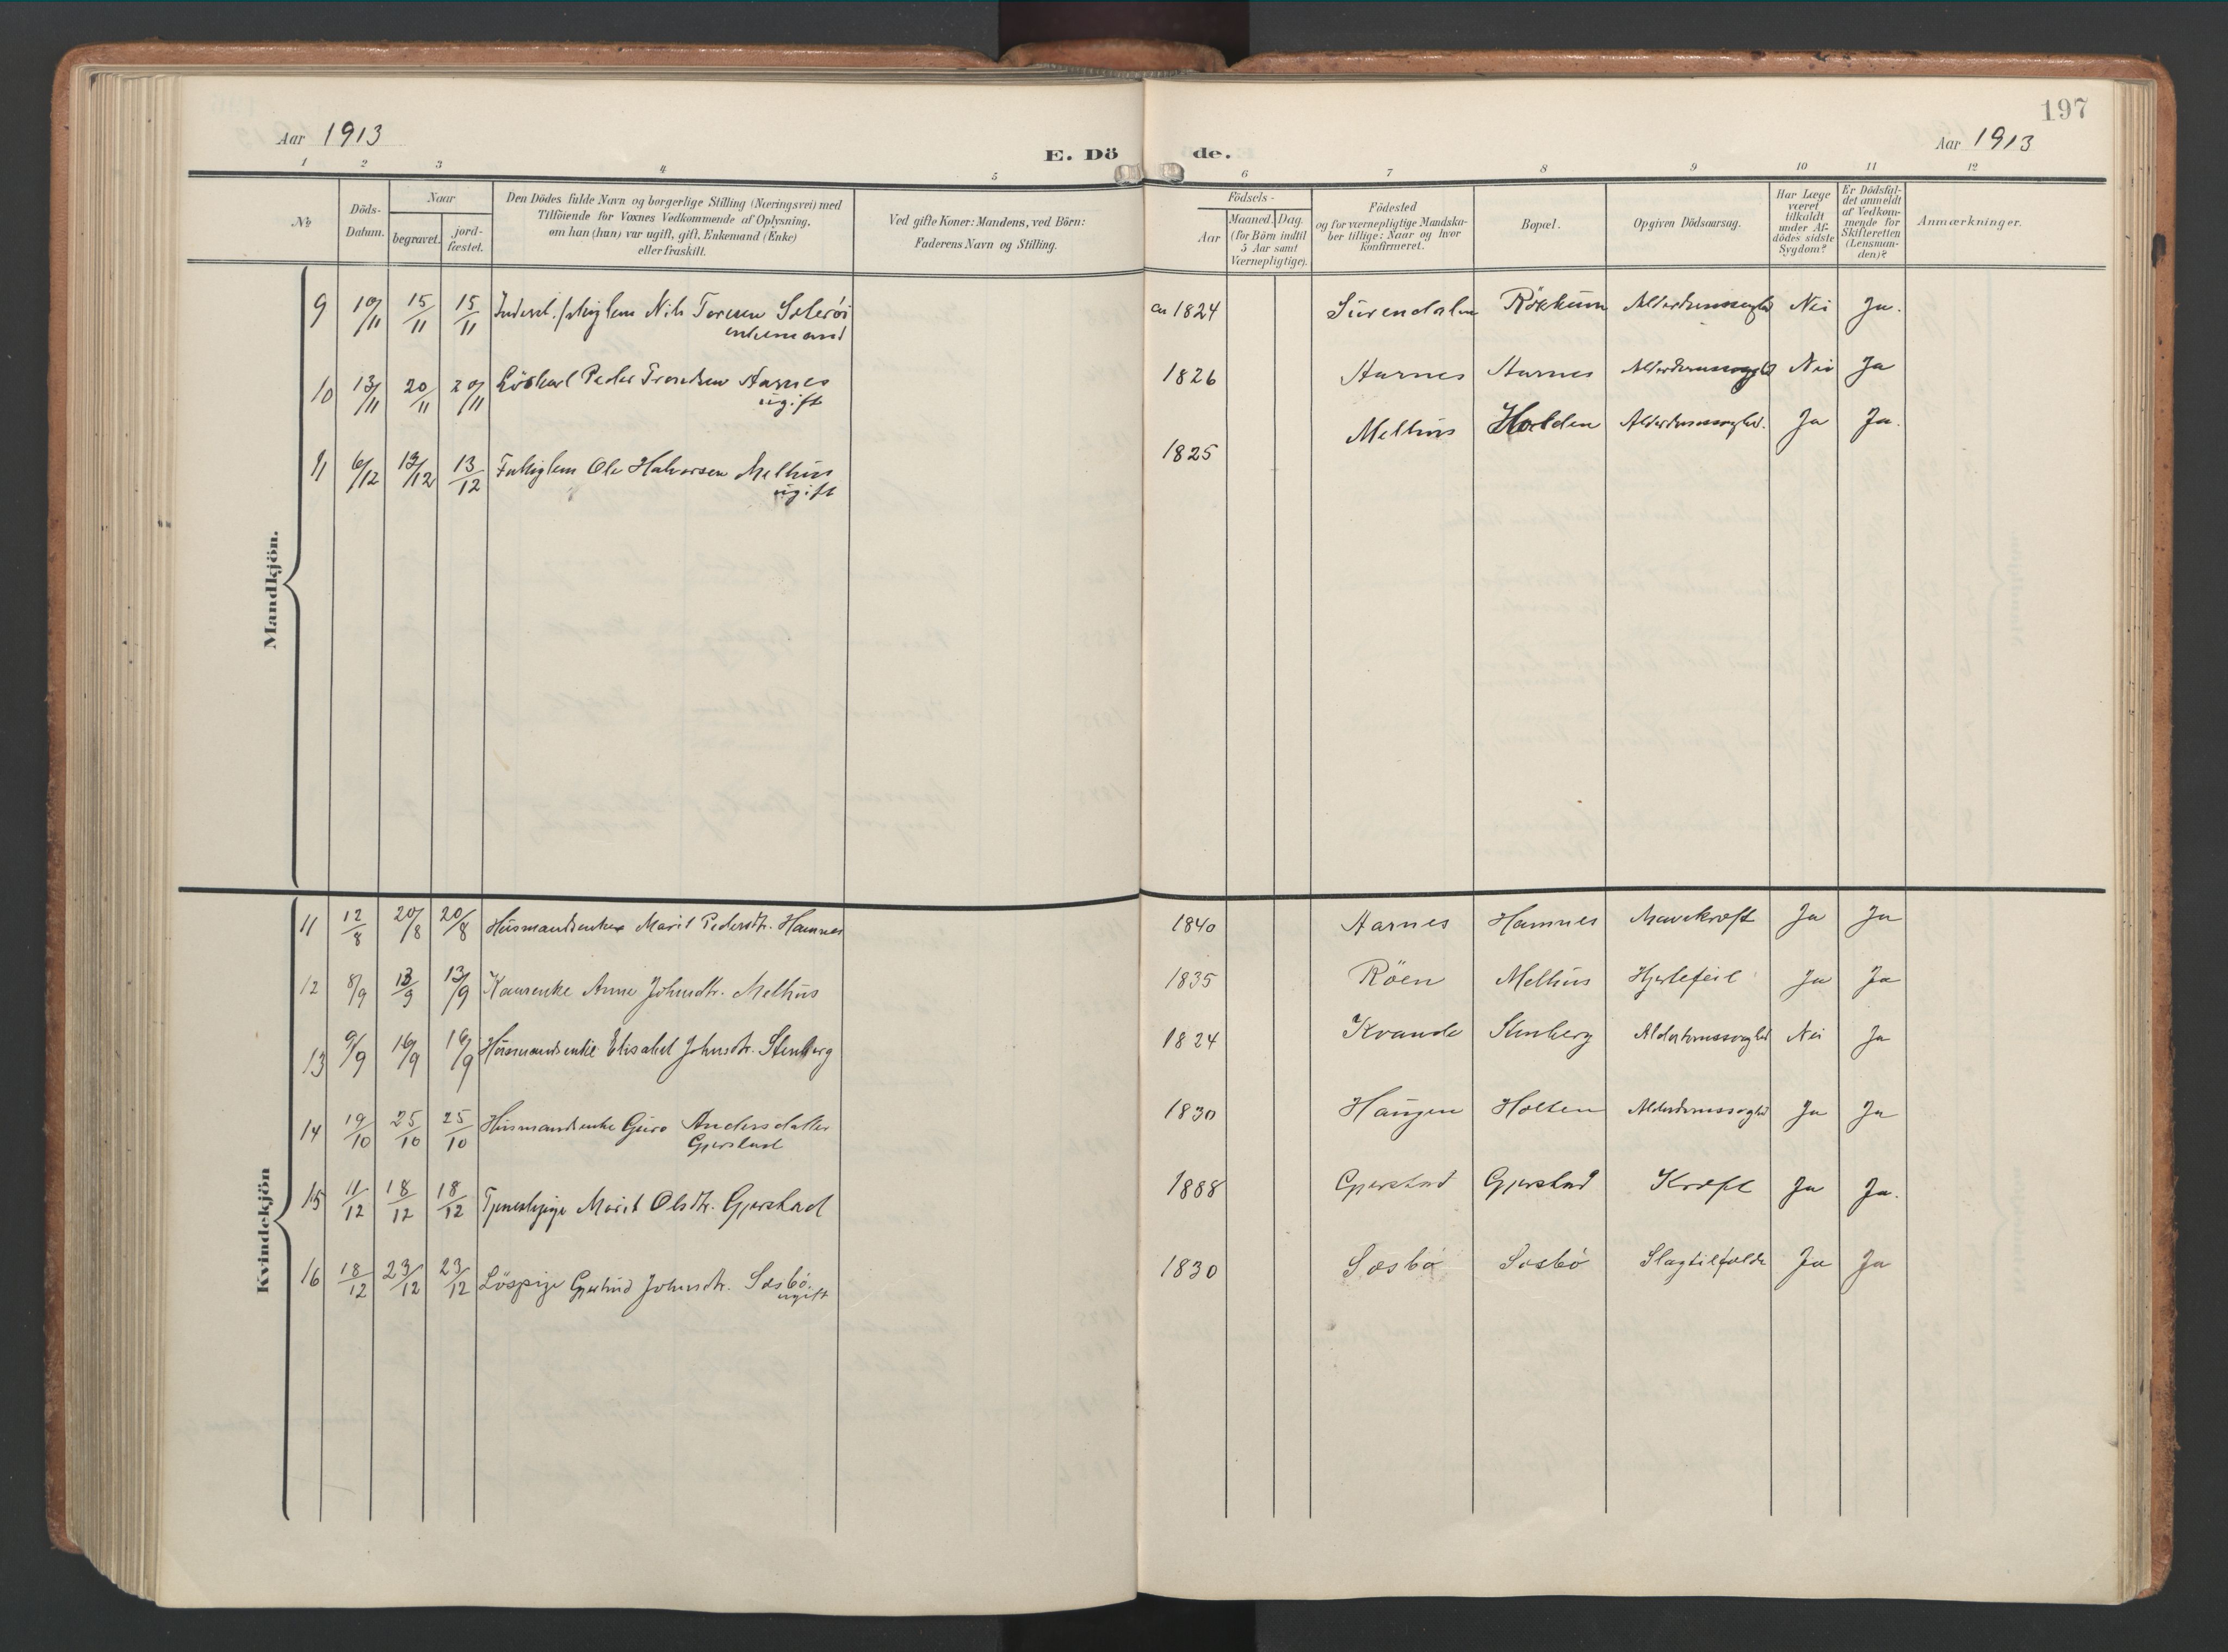 197
Aar 1913
Aar 1913
E. Dö de.
1 2 3 4 5 6 7 8 9 10 11 12
No
Döds-Datum.
Naar
begravet.
jord-fæstet.
Den Dödes fulde Navn og borgerlige Stilling (Næringsvei) med
Tilföiende for Voxnes Vedkommende af Oplysning,
om han (hun) var ugift, gift, Enkemand (Enke)
eller fraskilt.
Ved gifte Koner: Mandens, ved Börn:
Faderens Navn og Stilling.
Födsels-
Aar
Maaned. Dag.
(for Börn indtil
5 Aar samt
Værnepligtige).
Födested
og for værnepligtige Mandska-
ber tillige: Naar og hvor
konfirmeret.
Bopæl.
Opgiven Dödsaarsag.
Har Læge
været
tilkaldt
under Af-
dödes sidste
Sygdom?
Er Dödsfal-
det anmeldt
af Vedkom-
mende for
Skifteretten
(Lensman-
den)?
Anmærkninger.
Mandkjön.
9 10/11 15/11 15/11 Nils Toresen Sæteröi ca 1824 Surendalen Rökkum Alderdomssvaghed Nei Ja.
enkemand
10 13/11 20/11 20/11 Löskarl Peder Trondsen Aarnes 1826 Aarnes Aarnes Alderdomssvaghed Nei Ja
ugift
11 6/12 13/12 13/12 Fattiglem Ole Halvorsen Melhus 1825 Melhus Holden Alderdomssvaghed. Ja Ja.
ugift
Kvindekjön
11 12/8 20/8 20/8 Husmandsenke Marit Pedersdtr. Hamnes 1840 Aarnes Hamnes Mavekræft Ja Ja
12 8/9 13/9 13/9 Kaarenke Anne Johnsdtr. Melhus 1835 Röen Melhus Hjertefeil Ja Ja
13 9/9 16/9 16/9 Husmandsenke Elisabet Johnsdtr. Stenberg 1824 Kvande Stenberg Alderdomssvaghed Nei Ja
14 19/10 25/10 25/10 Husmandsenke Guro Andersdatter 1830 Haugen Holten Alderdomssvaghed Ja Ja
Gjerstad
15 11/12 18/12 18/12 Tjenestepige Marit Olsdtr. Gjerstad 1888 Gjerstad Gjerstad Kræft Ja Ja.
16 18/12 23/12 23/12 Löspige Gjertrud Johnsdtr. Sæsbö. 1830 Sæsbö Sæsbö Slagtilfælde Ja Ja
ugift